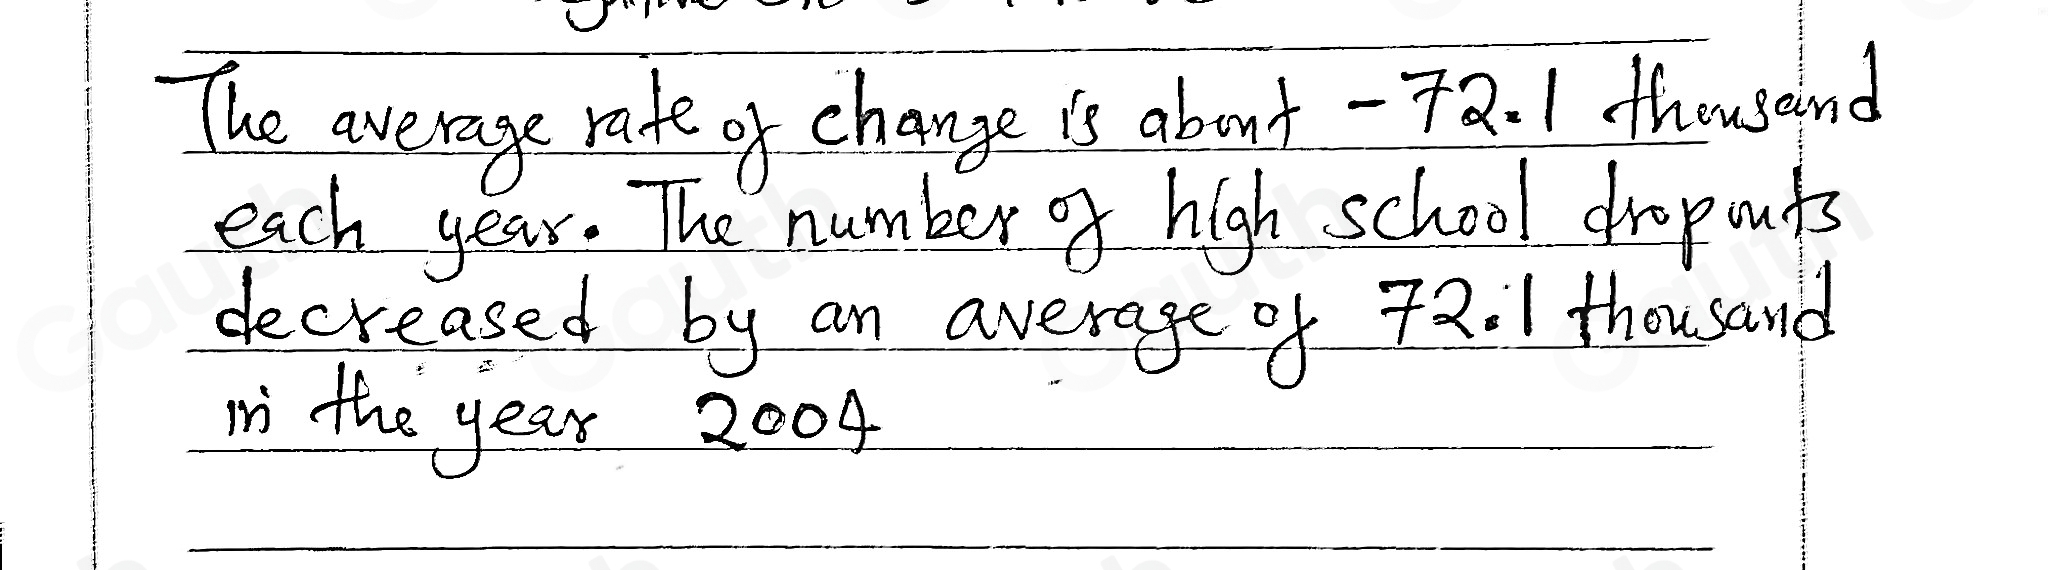 The average rate of change is about -72.1 thousand
each year. The number of high school dropouts
decreased by an average of 72.1 thousand
in the year 2004